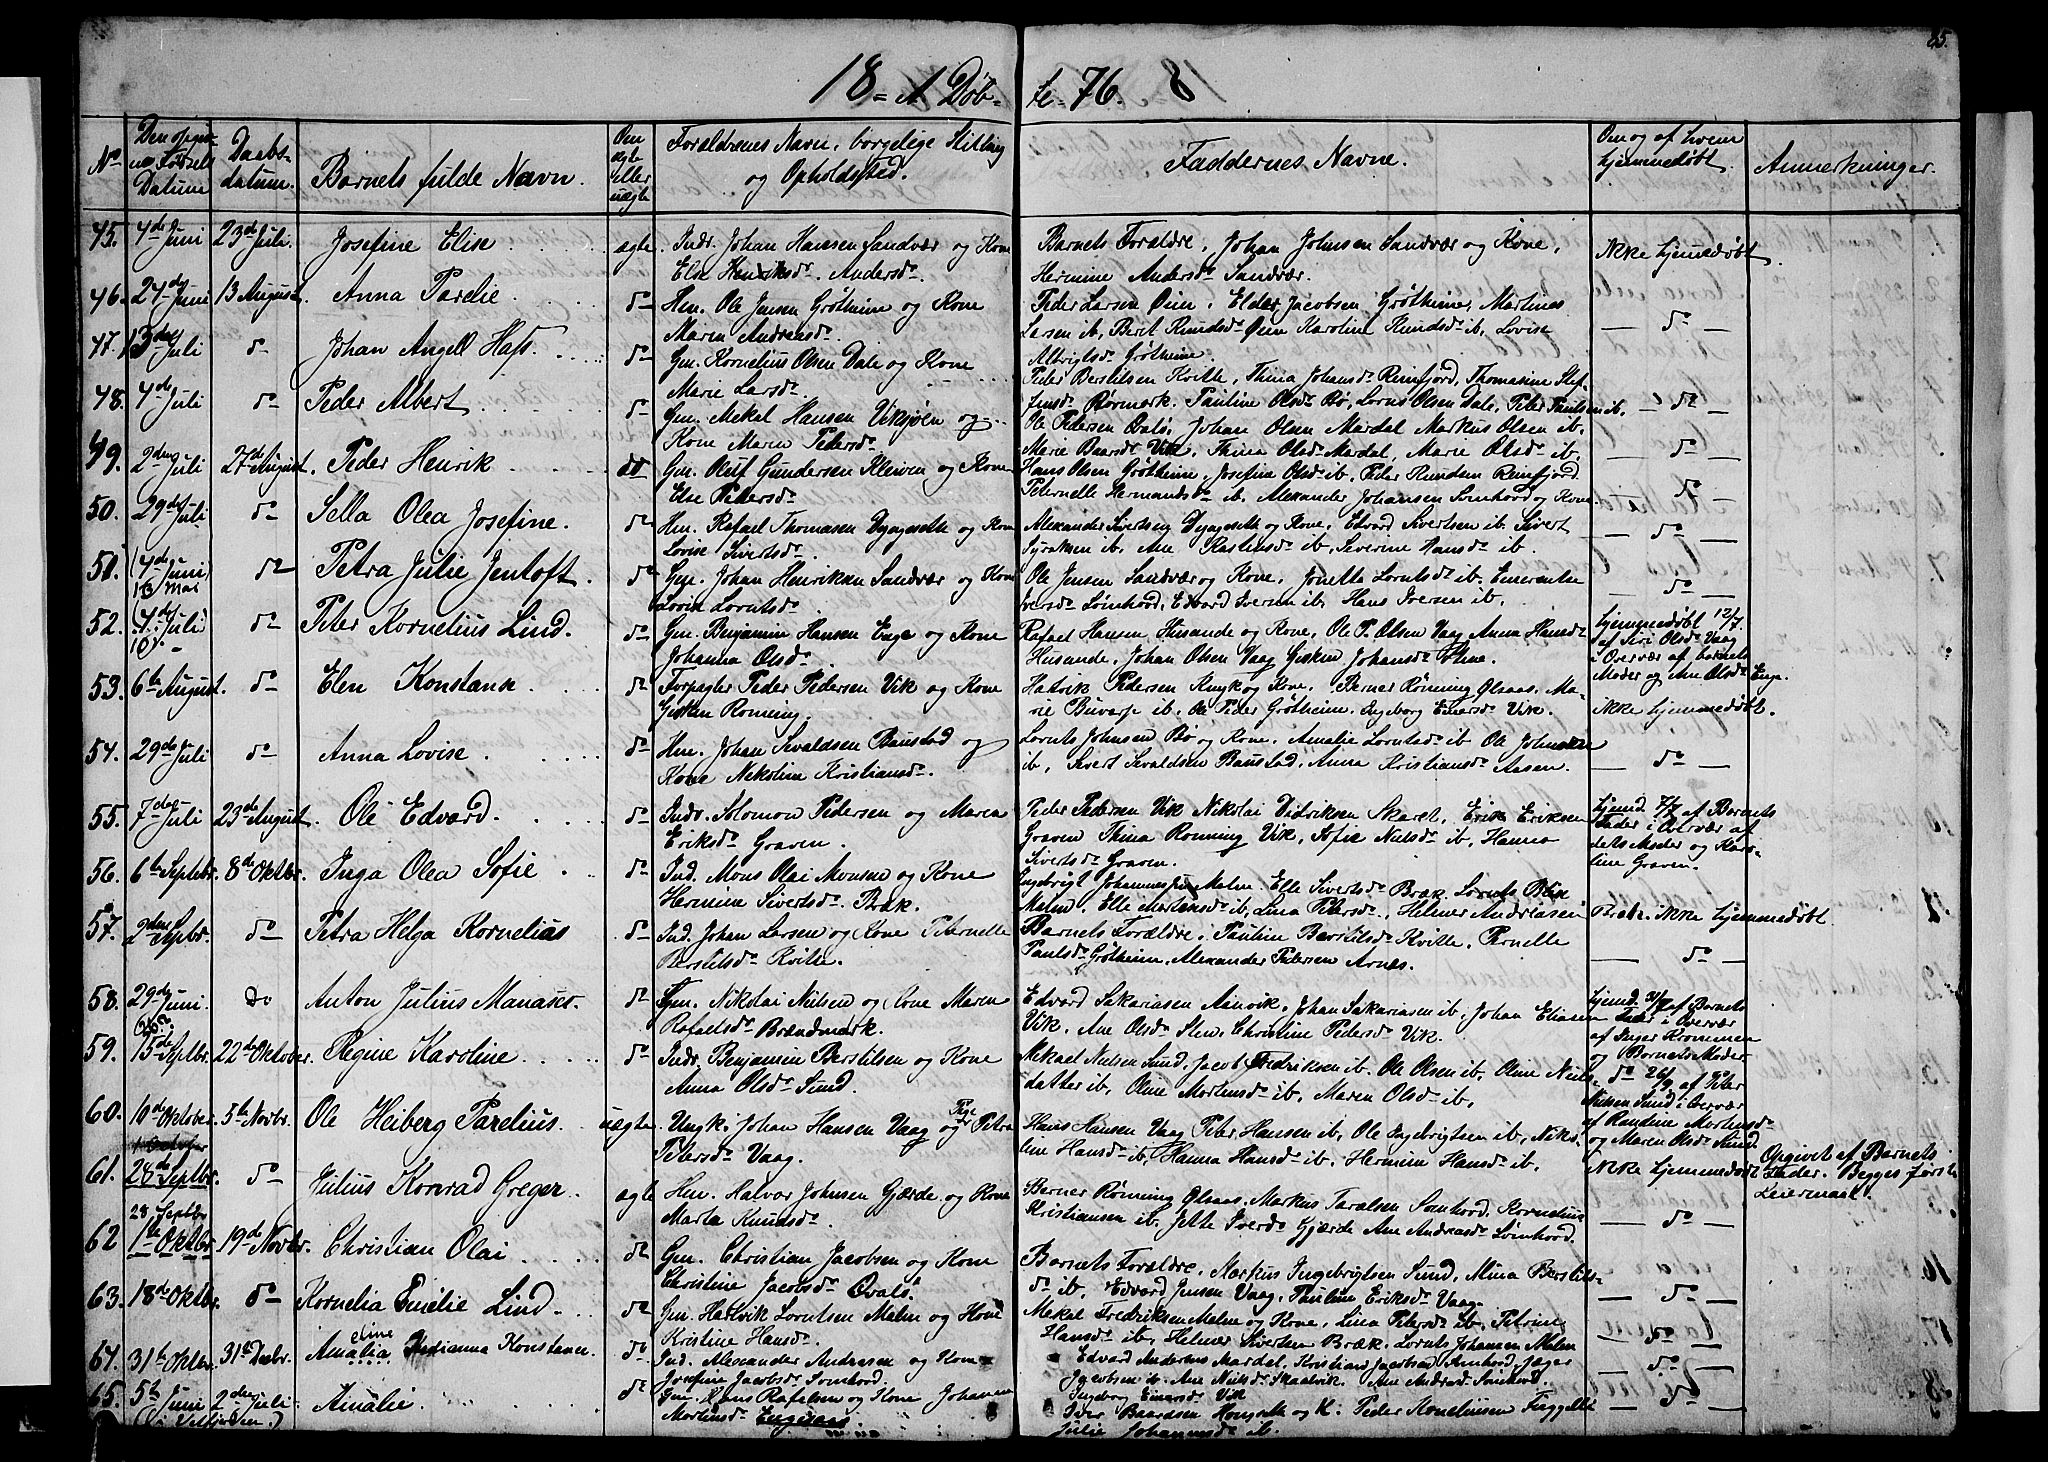 85.
18 = A Døb = te = 76. 8
No
Den opgivne Fødsels Datum
Daabsdatum.
Barnets fulde Navn.
Om ægte eller uægte
Forældrenes Navn, borgelige Stilling og Opholdssted.
Faddernes Navne.
Om og af hvem hjemmedøbt.
Anmerkninger.
45. 4de Juni 23de Juli. Josefine Elise ægte. Indr. Johan Hansen Sandvær og Kone
Else Andersd.
Barnets Forældre, Johan Johnsen Sandvær og Kone,
Hermine Andersd. Sandvær.
Ikke hjemmedøbt
46. 24de Juni 13 August. Anna Parelie. do Hm. Ole Jensen Grøtheim og Kone
Maren Andreasd.
Peder Larsen Øien, Elder Jacobsen Grøtheim, Martinus
Larsen ib, Berit Knudsd. Øien Karoline Knudsd. ib, Lovise
Albrigtsd. Grøtheim.
— do —
47. 13de Juli do Johan Angell Hass. do Gm. Kornelius Olsen Dale og Kone
Marie Larsd.
Peder Berstilsen Kvitte, Thina Johansd. Reinfjord, Thomasine
Børmark. Pauline Olsd. Bø, Lornts Olsen Dale, Peter Paulsen ib.
— do —
48. 4de Juli do Peder Albert do Gm. Mekal Hansen og
Kone Maren Petersd.
Ole Pedersen Johan Olsen Mardal Markus Olsen ib.
Marie Baarsd. Vik, Thina Olsd. Mardal, Marie Olsd. ib.
— do —
49. 2den Juli 27de August. Peder Henrik do Gm. Oluf Gundersen Kleiven og Kone
Else Petersd.
Hans Olsen Grøtheim, Josefine Olsd. ib. Peder Knudsen Reinfjord.
Peternelle Hermandsd. ib, Alexander Johansen Sømhovd og Kone.
— do —
50. 29de Juli do Sella Olea Josefine. do Hm. Rafael Thomasen og Kone
Lovise Sivertsd.
Alexander og Kone, Edvard Sivertsen ib. Sivert
ib, Ane ib, Severine Hansd. ib.
— do —
51. (4de Juni) 13 Mai do Petra Julie Jentoft. do Gm. Johan Henriksen Sandvær og Kone
Lovise Lorntsd.
Ole Jensen Sandvær og Kone, Jonetta Lorntsd. ib. Emerentse
Iversd. Sømhovd, Edvard Iversen ib, Hans Iversen ib.
— do —
52. (4de Juli) 10). do Peter Kornelius Lind. do Gm. Benjamin Hansen Enge og Kone
Johanna Olsd.
Rafael Hansen Husande og Kone, Ole P. Olsen Vaag Anna Hansd.
Husande, Johan Olsen Vaag Gisken Johansd.
hjemmedøbt 12/7
af Siri Olsd. Vaag
i Overvær af barnets
Moder og Ane Olsd. Enge.
53. 6te August. do Elen Konstanse do Forpagter Peder Pedersen Vik og Kone
Gisken Rønning.
Hatvik Pedersen og Kone. Berner Rønning Olsaas. Marie
ib. Ole Peder Grøtheim. Ingeborg Einarsd. Vik.
Ikke hjemmedøbt.
54. 29de Juli do Anna Lovise. do Hm. Johan Sivaldsen Baustad og
Kone Nekoline Kristiansd.
Lornts Johnsen Bø og Kone. Amalie Lorntsd. ib Ole Johnsen
ib, Sivert Sivaldsen Baustad, Anna Kristiansd. Aasen.
— do —
55. 7de Juli 23de August. Ole Edvard. do Indr. Solomon Pedersen og Maren
Eriksd. Graven.
Peder Pedersen Vik Nikolai Didriksen Skaret, Erik Eriksen
Graven Stina Rønning Vik, Sofie Nielsd. ib, Hanna
Sivertsd. Graven.
hjemd. 7/7 af Barnets
Fader i Overvær af
dets Moder og Karoline Graven.
56. 6te Septbr. 8de Oktbr. Inga Olea Sofie do Ind. Mons Olai Monsen og Kone
Hermine Sivertsd. Bræk.
Ingebrigt Johannesen Malm Elle Sivertsd. Bræk. Lornts
Malm, Elle Mortensd. ib, Lina Petersd., Helmer Andreasen
Bræk. ikke hjemmedøbt
57. 2den Septbr. do Petra Helga Kornelias do Ind. Johan Larsen og Kone Peternelle
Berstilsd. Kvitte.
Barnets Forældre, Pauline Berstilsd. Kvitte, Pernelle
Paulsd. Grøtheim, Alexander Pedersen Arnes.
— do —
58. 29de Juni. (26?) do Anton Julius Manases do Gm. Nikolai Nielsen og Kone Maren
Rafaelsd. Brændmark.
Edvard Sakariasen Aanvik, Johan Sakariasen ib, Johan Eliasen
Vik, Ane Olsd. Sten, Christine Pedersd. Vik.
hjemd. af Barnets
Fader i Overvær
af Inger Kronemen
og Barnets Moder
59. 15de Septbr. 22de Oktober. Regine Karoline do Indr. Benjamin Berstilsen og Kone
Anna Olsd. Sund.
Mekael Nielsen Sund, Jacob Fredriksen ib. Ole Olsen ib. Oline Nielsdatter ib, Oline Mortensd. ib. Maren Olsd. ib.
do 26/9 af Peter
Nielsen Sund i Overvær
af Randine Mortensd.
og Maren Olsd. Sund.
60. 10de Oktober. 5te Novbr. Ole Heiberg Parelius. uægte. Ungk. Johan Hansen Vaag og Pige Petra
Petersd. Vaag.
Hans Hansen Vaag Peter Hansen ib, Ole Ingebrigtsen ib, Nikoline Hansd. ib, Hanna Hansd. ib. Hermine Hansd. ib.
Ikke hjemmedøbt
Opgivet af Barnets
Fader. Begges første
Leiermaal.
61. 28de Septbr. do Julius Konrad Greger ægte Hm. Halvor Johnsen Gjærde og Kone
Marta Knudsd.
Berner Rønning Olsaas, Markus Taralsen Sømhovd, Kornelius
Kristiansen ib. Jette Iversd. Gjærde Ane Andreasd. Sømhovd.
— do —
28 Septbr
62 1te Oktbr. 19de Novbr. Christian Olai do Gm. Christian Jacobsen og Kone
Christine Jacobsd. Qvals.
Barnets Forældre, Markus Ingebrigtsen Sund, Mina Berstilsd. ib. Edvard Jensen Vaag, Pauline Eriksd. Vaag.
— do —
63. 18de Oktbr. do Kornelia Emelie Lind do Gm. Hatvik Lorntsen Malm og Kone
Kristine Hansd.
Mekal Fredriksen Malm og Kone, Lina Petersd. ib, Petrine
Hansd. ib, Helmer Sivertsen Bræk. Lornts Johansen Malm
— do —
64. 31te Oktbr. 31te Decbr. Amalia Konstanse. do Ind. Alexander Andresen og Kone
Josefine Jacobsd. Sømhovd.
Edvard Andersen Mardal, Kristian Jacobsen Sømhovd, Jæger
Jacobsen ib. Ane Nielsd. Skaalvik. Ane Andreasd. Sømhovd.
Ingeborg Einarsd. Vik
— do —
65. 5te Juni 2den Juli Amalie do Gm. Hans Rafelsen og Kone Johanna
Mortensd.
Iver Baardsen og K. Peder Kornelinssen
Julie Johannesd. ib.
do
(i Velfjorden.)